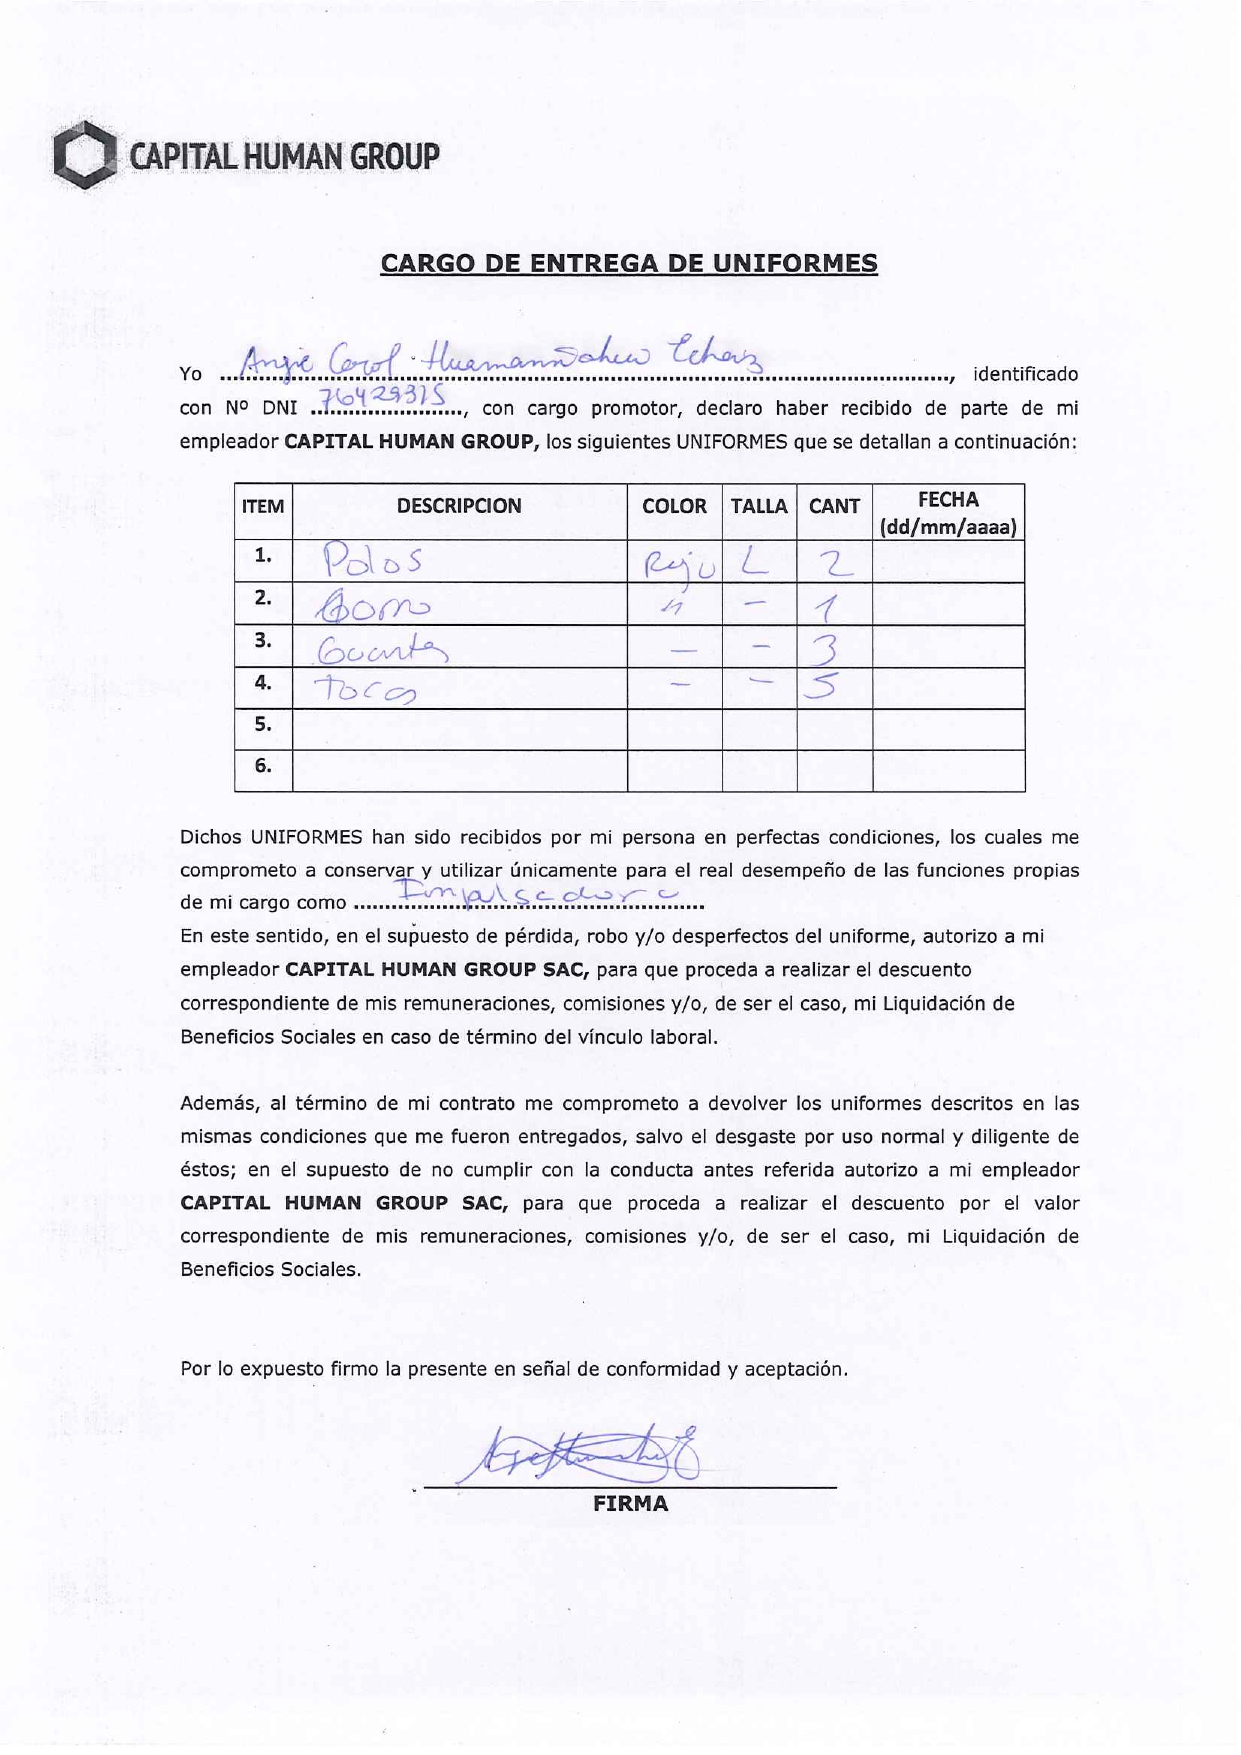 CAPITAL HUMAN GROUP
CARGO DE ENTREGA DE UNIFORMES
Yo Angie Carol Huamanñahui Echaiz, identificado
con Nº DNI 76429315, con cargo promotor, declaro haber recibido de parte de mi
empleador CAPITAL HUMAN GROUP, los siguientes UNIFORMES que se detallan a continuación:
ITEM DESCRIPCION COLOR TALLA CANT FECHA (dd/mm/aaaa)
1. Polos Rojo L 2
2. Gorro " - 1
3. Guantes - - 3
4. Tocas - - 5
5.
6.
Dichos UNIFORMES han sido recibidos por mi persona en perfectas condiciones, los cuales me
comprometo a conservar y utilizar únicamente para el real desempeño de las funciones propias
de mi cargo como Impulsadora
En este sentido, en el supuesto de pérdida, robo y/o desperfectos del uniforme, autorizo a mi
empleador CAPITAL HUMAN GROUP SAC, para que proceda a realizar el descuento
correspondiente de mis remuneraciones, comisiones y/o, de ser el caso, mi Liquidación de
Beneficios Sociales en caso de término del vínculo laboral.
Además, al término de mi contrato me comprometo a devolver los uniformes descritos en las
mismas condiciones que me fueron entregados, salvo el desgaste por uso normal y diligente de
éstos; en el supuesto de no cumplir con la conducta antes referida autorizo a mi empleador
CAPITAL HUMAN GROUP SAC, para que proceda a realizar el descuento por el valor
correspondiente de mis remuneraciones, comisiones y/o, de ser el caso, mi Liquidación de
Beneficios Sociales.
Por lo expuesto firmo la presente en señal de conformidad y aceptación.
FIRMA